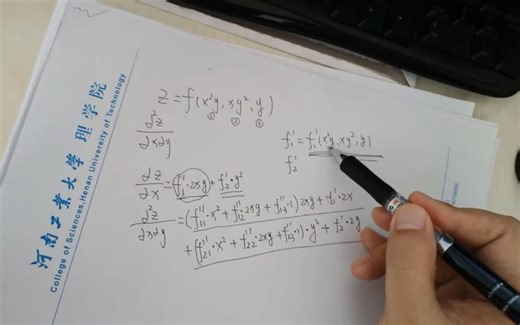 河南工业大学 理学院
College of Sciences, Henan University of Technology
z = f(x²y, xy², y)
① ② ③
∂²z/∂x∂y
f₁' = f₁'(x²y, xy², y)
f₂'
∂z/∂x = f₁'·2xy + f₂'·y²
∂²z/∂x∂y = (f₁₁''·x² + f₁₂''·2xy + f₁₃''·1)·2xy + f₁'·2x
+ (f₂₁''·x² + f₂₂''·2xy + f₂₃''·1)·y² + f₂'·2y